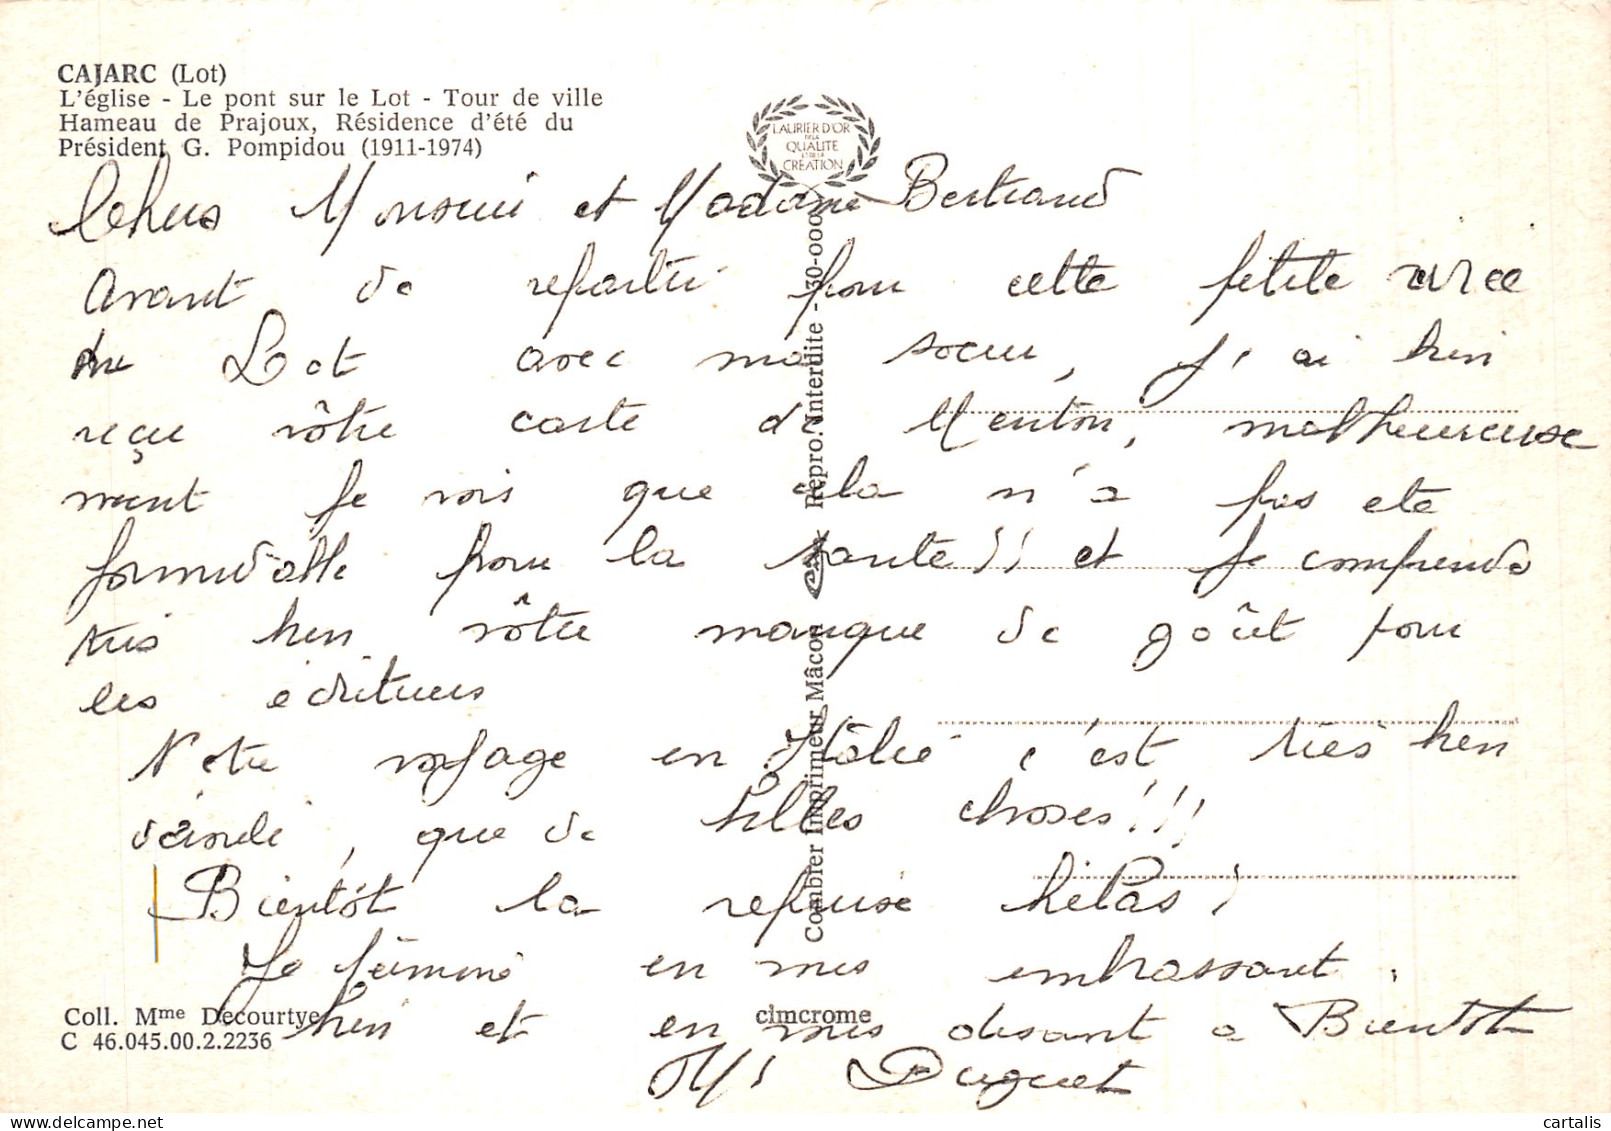 CAJARC (Lot)
L'église - Le pont sur le Lot - Tour de ville
Hameau de Prajoux, Résidence d'été du
Président G. Pompidou (1911-1974)
LAURIER D'OR
DE LA
QUALITE
ET DE LA
CREATION
Chers Monsieur et Madame Bertrand
Avant de repartir pour cette petite virée
du Lot avec ma soeur, j'ai bien
reçu vôtre carte de Menton, malheureuse
ment je vois que cela n'a pas ete
formidable pour la santé!! et je comprends
très bien vôtre manque de goût pour
les ecritures
Notre voyage en Italie c'est très bien
déroulé, que de belles choses!!!
Bientôt la reprise hélas!
Je termine en vous embrassant.
bien et en vous disant a Bientôt
Duguet
Combier Imprimeur Mâcon
Repro. Interdite - 30-000
Coll. Mme Decourtye
C 46.045.00.2.2236
cimcrome
cartalis